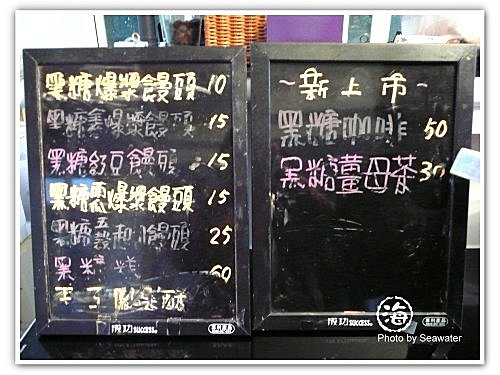 黑糖爆漿饅頭 10
黑糖素爆漿饅頭 15
黑糖紅豆饅頭 15
黑糖 爆漿饅頭 15
黑糖 起 饅頭 25
黑糖糕 60
成功 SUCCESS
~新上市~
黑糖咖啡 50
黑糖薑母茶 30
成功 SUCCESS
海
Photo by Seawater